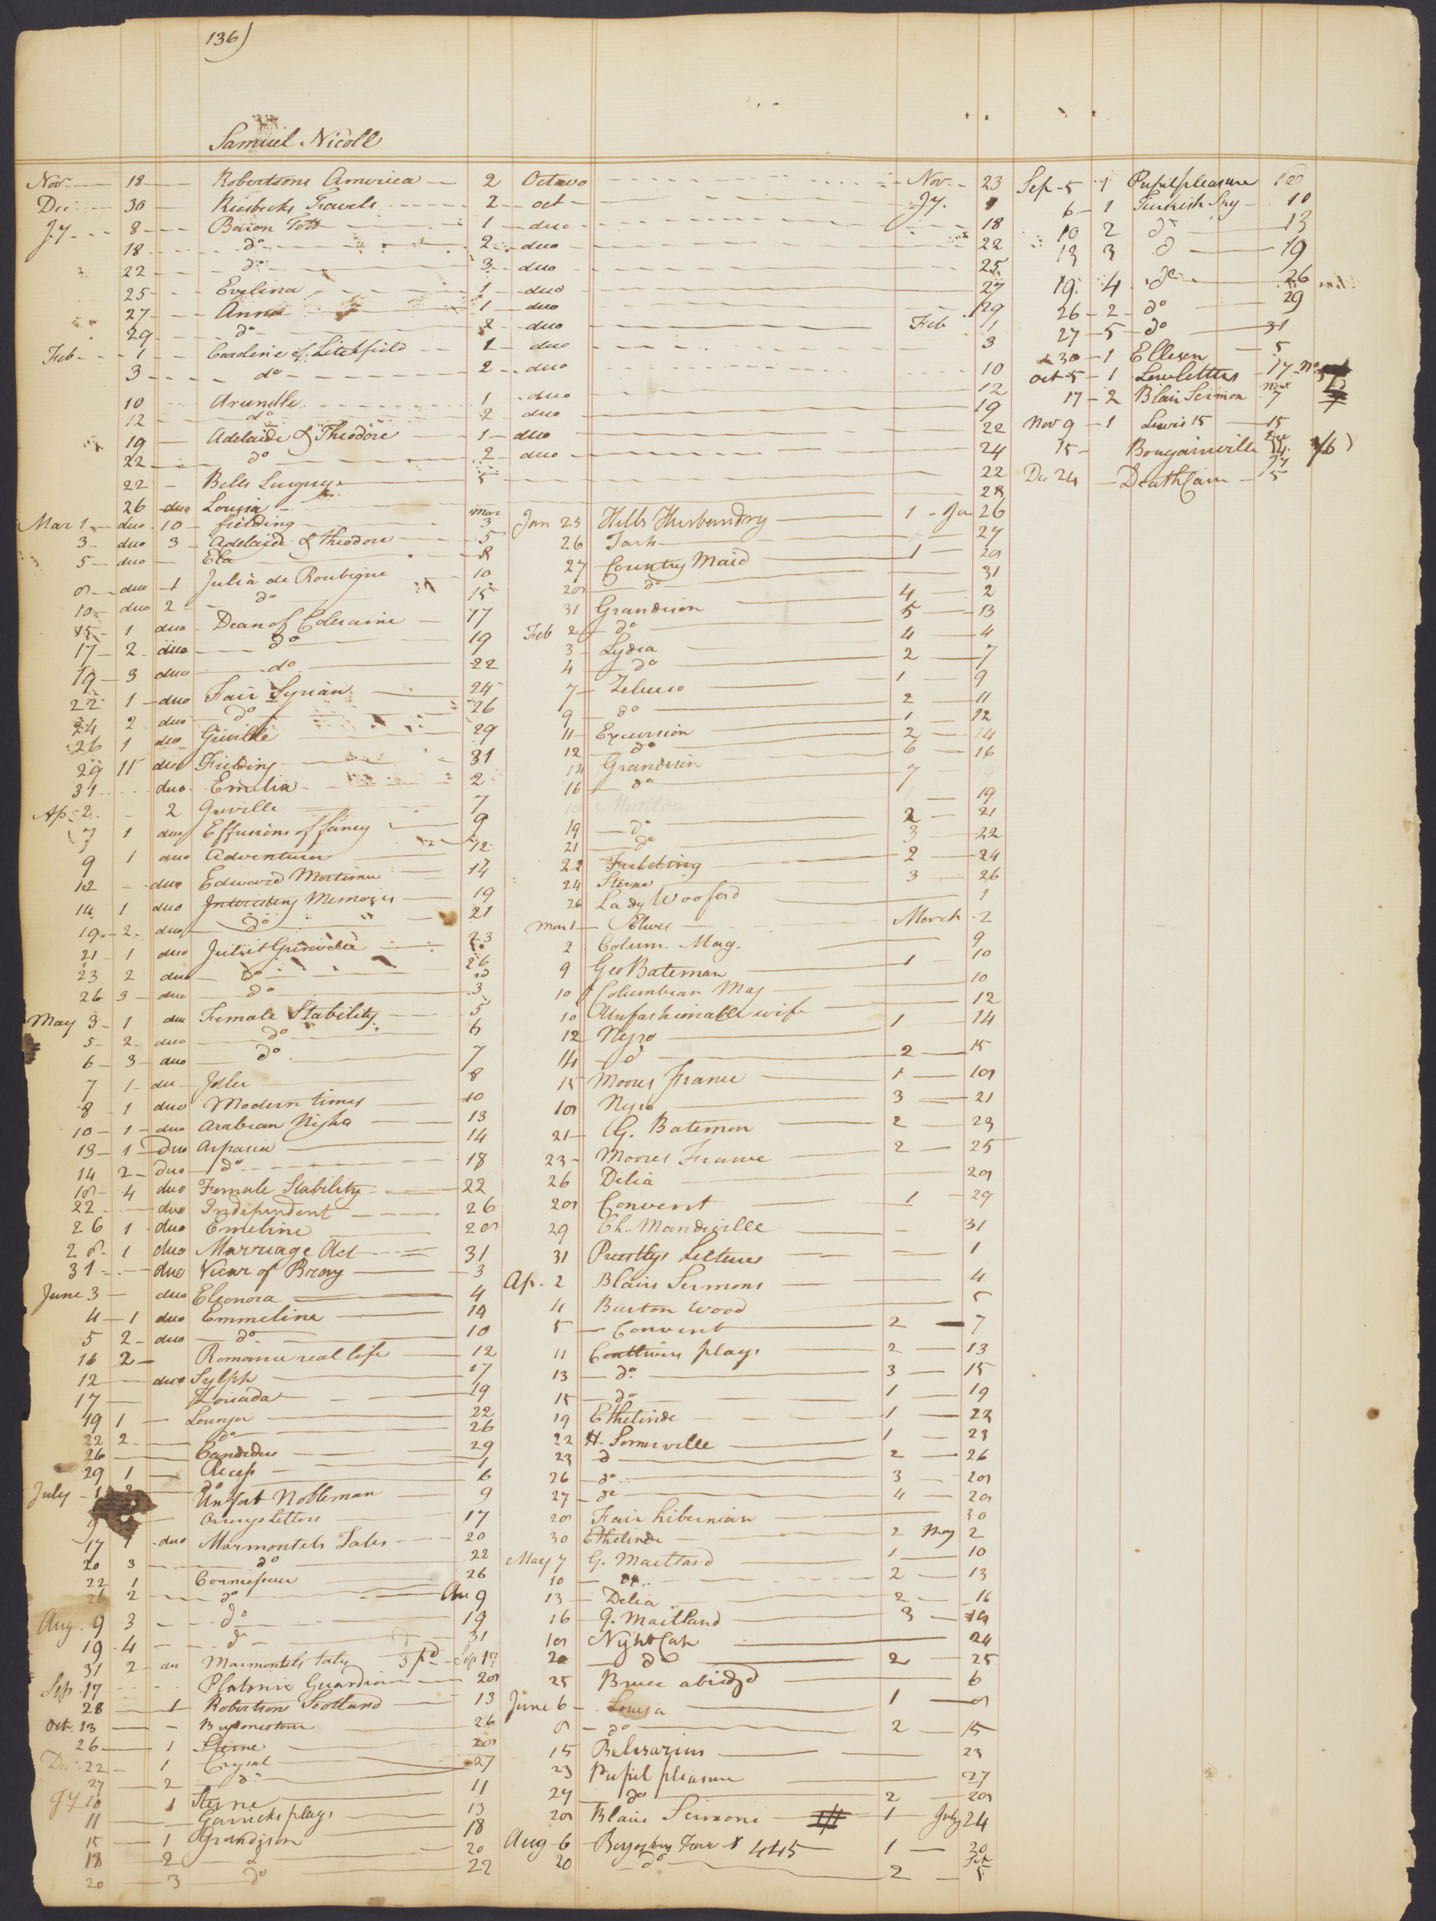 136)
Samuel Nicoll
Nov 18 Robertsons America 2 Octavo Nov 23
Dec 30 Riesbecks Travels 2 oct Jy.
Jy 8 Baron Tott 1 duo 18
18 do 2 duo 22
22 do 3 duo 25
25 Evelina 1 duo 27
27 Anna 1 duo 29
29 do 2 duo Feb 1
Feb 1 Caroline of Litchfield 1 duo 3
3 do 2 duo 10
10 Arundle 1 duo 12
12 do 2 duo 19
19 Adelaide & Theodore 1 duo 22
22 do 2 duo 24
22 Bells Surgery 5 22
26 duo Louisa 28
Mar 1 duo 10 fielding 3
3 duo 3 Adelaide & Theodore 5
5 duo Ela 8
8 duo 1 Julia de Roubigne 10
10 duo 2 do 15
15 1 duo Dean of Coleraine 17
17 2 duo do 19
19 3 duo do 22
22 1 duo Fair Syrian 24
24 2 duo do 26
26 1 duo Greville 29
29 11 duo Fielding 31
31 duo Emelia 2
Ap 2 2 Greville 7
7 1 duo Effusions of fancy 9
9 1 duo Adventurer 12
12 duo Edward Mortimer 14
14 1 duo Interesting Memoirs 19
19 2 duo do 21
21 1 duo Juliet Grenville 23
23 2 duo do 26
26 3 duo do 3
May 3 1 duo Female Stability 5
5 2 duo do 6
6 3 duo do 7
7 1 duo Idler 8
8 1 duo Modern times 10
10 1 duo Arabian Nights 13
13 1 duo Aspasia 14
14 2 duo do 18
18 4 duo Female Stability 22
22 duo Independent 26
26 1 duo Emeline 28
28 1 duo Marriage Act 31
31 duo Vicar of Bray 3
June 3 duo Eleonora 4
4 1 duo Emmeline 14
5 2 duo do 10
11 2 Romance real life 12
12 duo Sylph 17
17 Louiada 19
19 1 Lounger 22
22 2 do 26
26 Candidus 29
29 1 Recess 1
July 1 2 do 6
Unfort Nobleman 9
9 Orrerys Letters 17
17 1 duo Marmontels Tales 20
20 3 do 22
22 1 Connoisseur 26
26 2 do Au 9
Aug 9 3 do 19
19 4 do 31
31 2 du Marmontels tales Sep 17
Sep 17 Platonic Guardian 28
28 1 Robertson Scotland 13
Oct 13 26
26 1 Sterne 28
De 22 1 Crysal 27
27 2 do
Jy 10 1 Sterne 11
11 Garricks plays 13
15 1 Grandison 18
18 2 do 20
20 3 do 22
Jan 23 Hills Husbandry 1 Ja 26
26 Task 27
27 Country Maid 1 28
28 do 31
31 Grandison 4 2
Feb 2 do 5 13
3 Lydia 4 4
4 do 2 7
7 Zeluco 1 9
9 do 2 11
11 Excursion 1 12
12 do 2 14
14 Grandison 6 16
16 do 7
Matilda 19
19 do 2 21
21 do 3 22
22 Fielding 2 24
24 Sterne 3 26
26 Lady Wooford 1
Mar 1 Elwes March 2
2 Colum. Mag. 9
9 Geo Bateman 1 10
10 Columbian Mag 10
10 Unfashionable wife 12
12 Negro 1 14
14 do 2 15
15 Moores France 1 18
18 Negro 3 21
21 G. Bateman 2 23
23 Moores France 2 25
26 Delia 28
28 Convent 1 29
29 Ch. Mandeville 31
31 Prestlys Letters 1
Ap. 2 Blairs Sermons 4
4 Burton Wood 5
5 Convent 2 7
11 plays 2 13
13 do 3 15
15 do 1 19
19 Ethelinde 1 22
22 H. Somerville 1 23
23 do 2 26
26 do 3 28
27 do 4 28
28 Fair hibernian 30
30 Ethelinde 2 May 2
May 7 G. Maitland 1 10
10 do 2 13
13 Delia 2 16
16 G. Maitland 3 19
18 Night Cap 24
20 do 2 25
25 Bruce abridgd 6
June 6 Louisa 1 8
8 do 2 15
15 Belisarius 23
23 Pupil pleasure 27
27 do 2 28
28 Blairs Sermons 1 July 24
Aug 6 4445 1 20
20 do 2 Feb 5
Sep 5 1 Pupil pleasure
6 1 Turkish Spy 10
10 2 do 13
13 3 do 19
19 4 do 26
26 2 do 29
27 5 do 31
30 1 Ellesen 5
Oct 5 1 Letters 17
17 2 Blair Sermon 7
Nov 9 1 Lewis 15 15
15 Bougainville
De 24 Death Cain 5